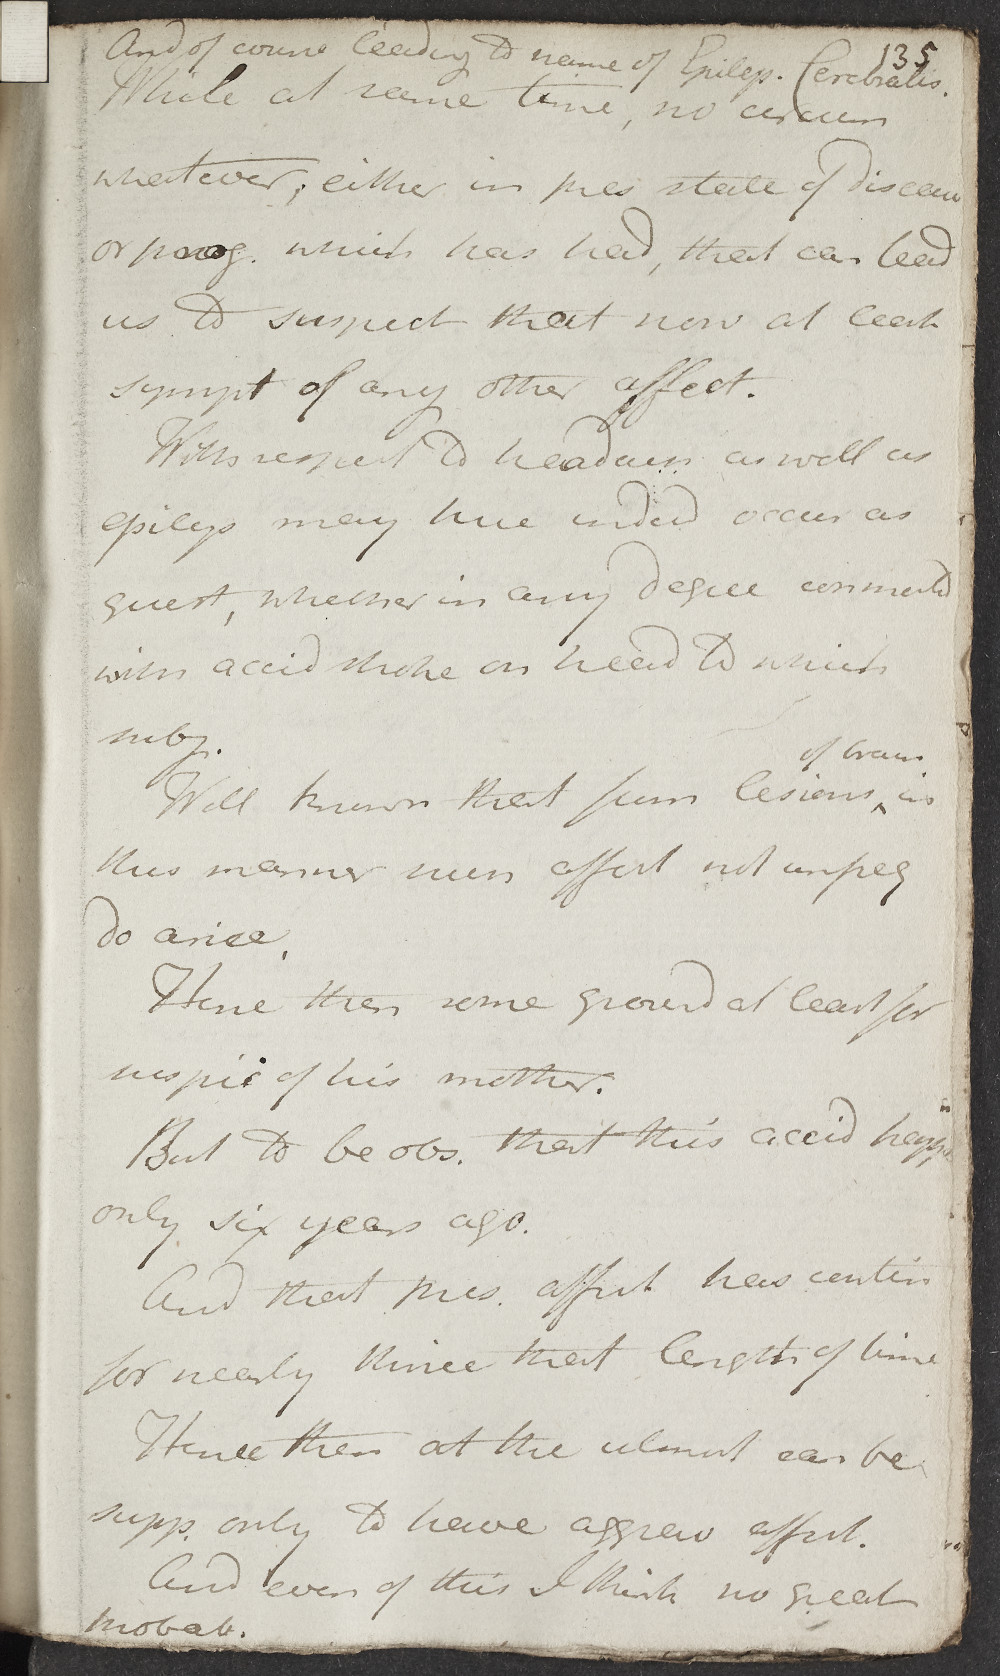 135
And of course leading to name of Epilep. Cerebralis.
While at same time, no circum
whatever, either in pres state of disease
or prog. which has had, that can lead
us to suspect that now at least
sympt of any other affect.
With respect to headach as well as
epileps may here indeed occur as
quest, whether in any degree connected
with accid stroke on head to which
subj.
Well known that from lesions of brain in
this manner such affect not unfreq
do arise.
Hence then some ground at least for
suspic of his mother.
But to be obs. that this accid happ
only six years ago.
And that pres. affect has contin
for nearly thrice that length of time
Hence then at the utmost can be
supp. only to have aggrav affect.
And even of this I think no great
probab.